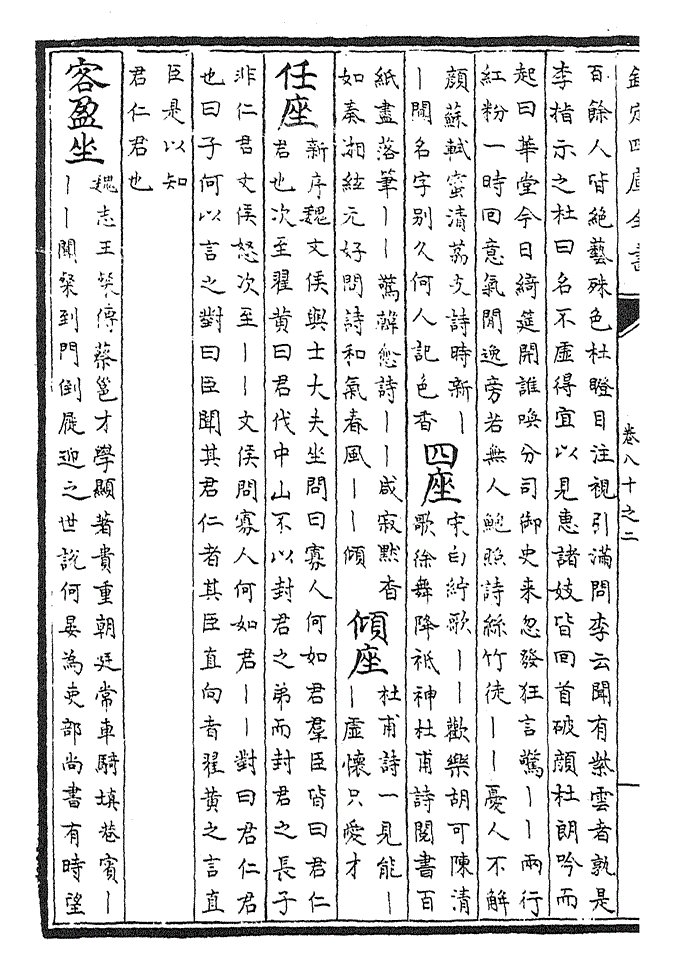 欽定四庫全書
卷八十之二
百餘人皆絕藝殊色杜瞪目注視引滿問李云聞有紫雲者孰是
李指示之杜曰名不虛得宜以見惠諸妓皆回首破顏杜朗吟而
起曰華堂今日綺筵開誰喚分司御史来忽發狂言驚丨丨兩行
紅粉一時回意氣閒逸旁若無人鮑照詩絲竹徒丨丨憂人不解
顔蘇軾蜜清荔支詩時新丨
丨聞名字别久何人記色香
四座
宋白紵歌丨丨歡樂胡可陳清
歌徐舞降祇神杜甫詩閱書百
紙盡落筆丨丨驚韓愈詩丨丨咸寂默杳
如奏湘絃元好問詩和氣春風丨丨傾
傾座
杜甫詩一見能丨
丨虛懷只愛才
任座
新序魏文侯與士大夫坐問曰寡人何如君羣臣皆曰君仁
君也次至翟黄曰君代中山不以封君之弟而封君之長子
非仁君文侯怒次至丨丨文侯問寡人何如君丨丨對曰君仁君
也曰子何以言之對曰臣聞其君仁者其臣直向者翟黄之言直
臣是以知
君仁君也
客盈坐
魏志王粲傳蔡邕才學顯著貴重朝廷常車騎填巷賓丨
丨丨聞粲到門倒屣迎之世說何晏為吏部尚書有時望